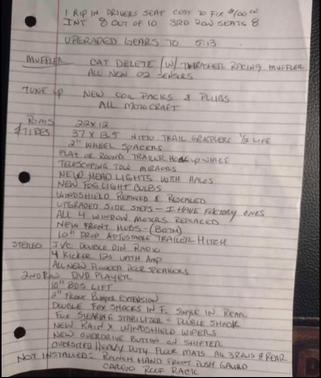 1 RIP IN DRIVERS SEAT COST TO FIX $100.00
INT 8 OUT OF 10 3RD ROW SEATS 8
UPGRADED GEARS TO 5:13
MUFFLER CAT DELETE (W/ THRASHER RACING MUFFLER
ALL NEW O2 SENSORS
TUNE UP NEW COIL PACKS & PLUGS
ALL MOTORCRAFT
RIMS 22X12
& TIRES 37 X 13.5 NITTO TRAIL GRAPPLERS 1/2 LIFE
2" WHEEL SPACERS
FLAT OR ROUND TRAILER HOOK UP
TELESCOPING TOW MIRRORS
NEW HEAD LIGHTS WITH HALOS
NEW FOG LIGHT BULBS
WINDSHIELD REMOVED & RESEALED
UPGRADED SIDE STEPS - I HAVE FACTORY ONES
ALL 4 WINDOW MOTORS REPLACED
NEW FRONT HUBS - (BOTH)
10" DROP ADJUSTABLE TRAILER HITCH
STEREO JVC DOUBLE DIN RADIO
4 KICKER 12s WITH AMP
ALL NEW DOOR SPEAKERS
2ND ROW DVD PLAYER
10" BDS LIFT
2" FRONT BUMPER EXTENSION
DOUBLE FOX SHOCKS IN F. SINGLE IN REAR
FOX STEARING STABILIZER - DOUBLE SHOCK
NEW RAIN X WINDSHIELD WIPERS
NEW OVERDRIVE BUTTON ON SHIFTER
OVERSIZED HEAVY DUTY FLOOR MATS ALL 3 ROWS & REAR
NOT INSTALLED: RANCH HAND FRONT PUSH GAURD
CARGO ROOF RACK